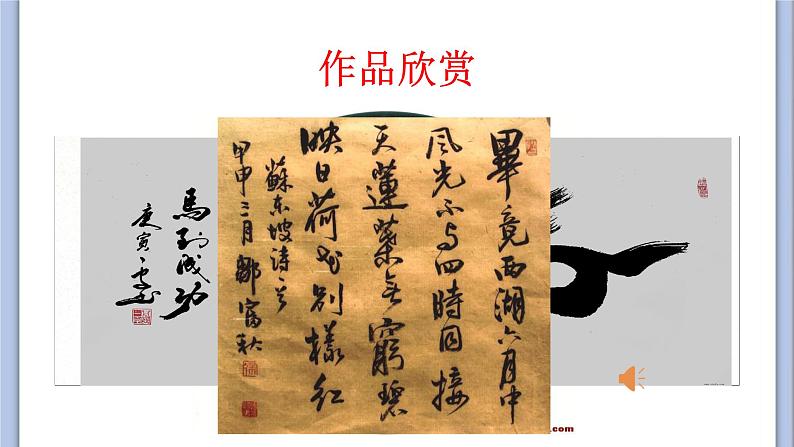 作品欣赏
畢竟西湖六月中
风光不与四時同接
天蓮葉无窮碧
映日荷花别樣红
蘇东坡诗
甲申三月鄒富秋
馬到成功
庚寅
.com